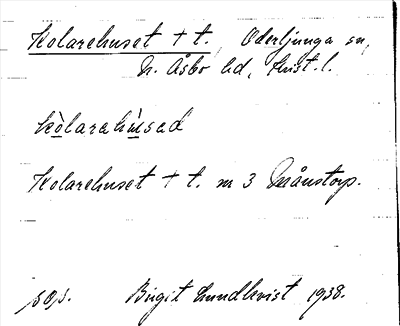 Kolarehuset † t., Oderljunga sn,
N. Åsbo hd, Krist. l.
kòlarahúsad
Kolarehuset † t. nr 3 Månstorp.
sos. Birgit Lundkvist 1938.